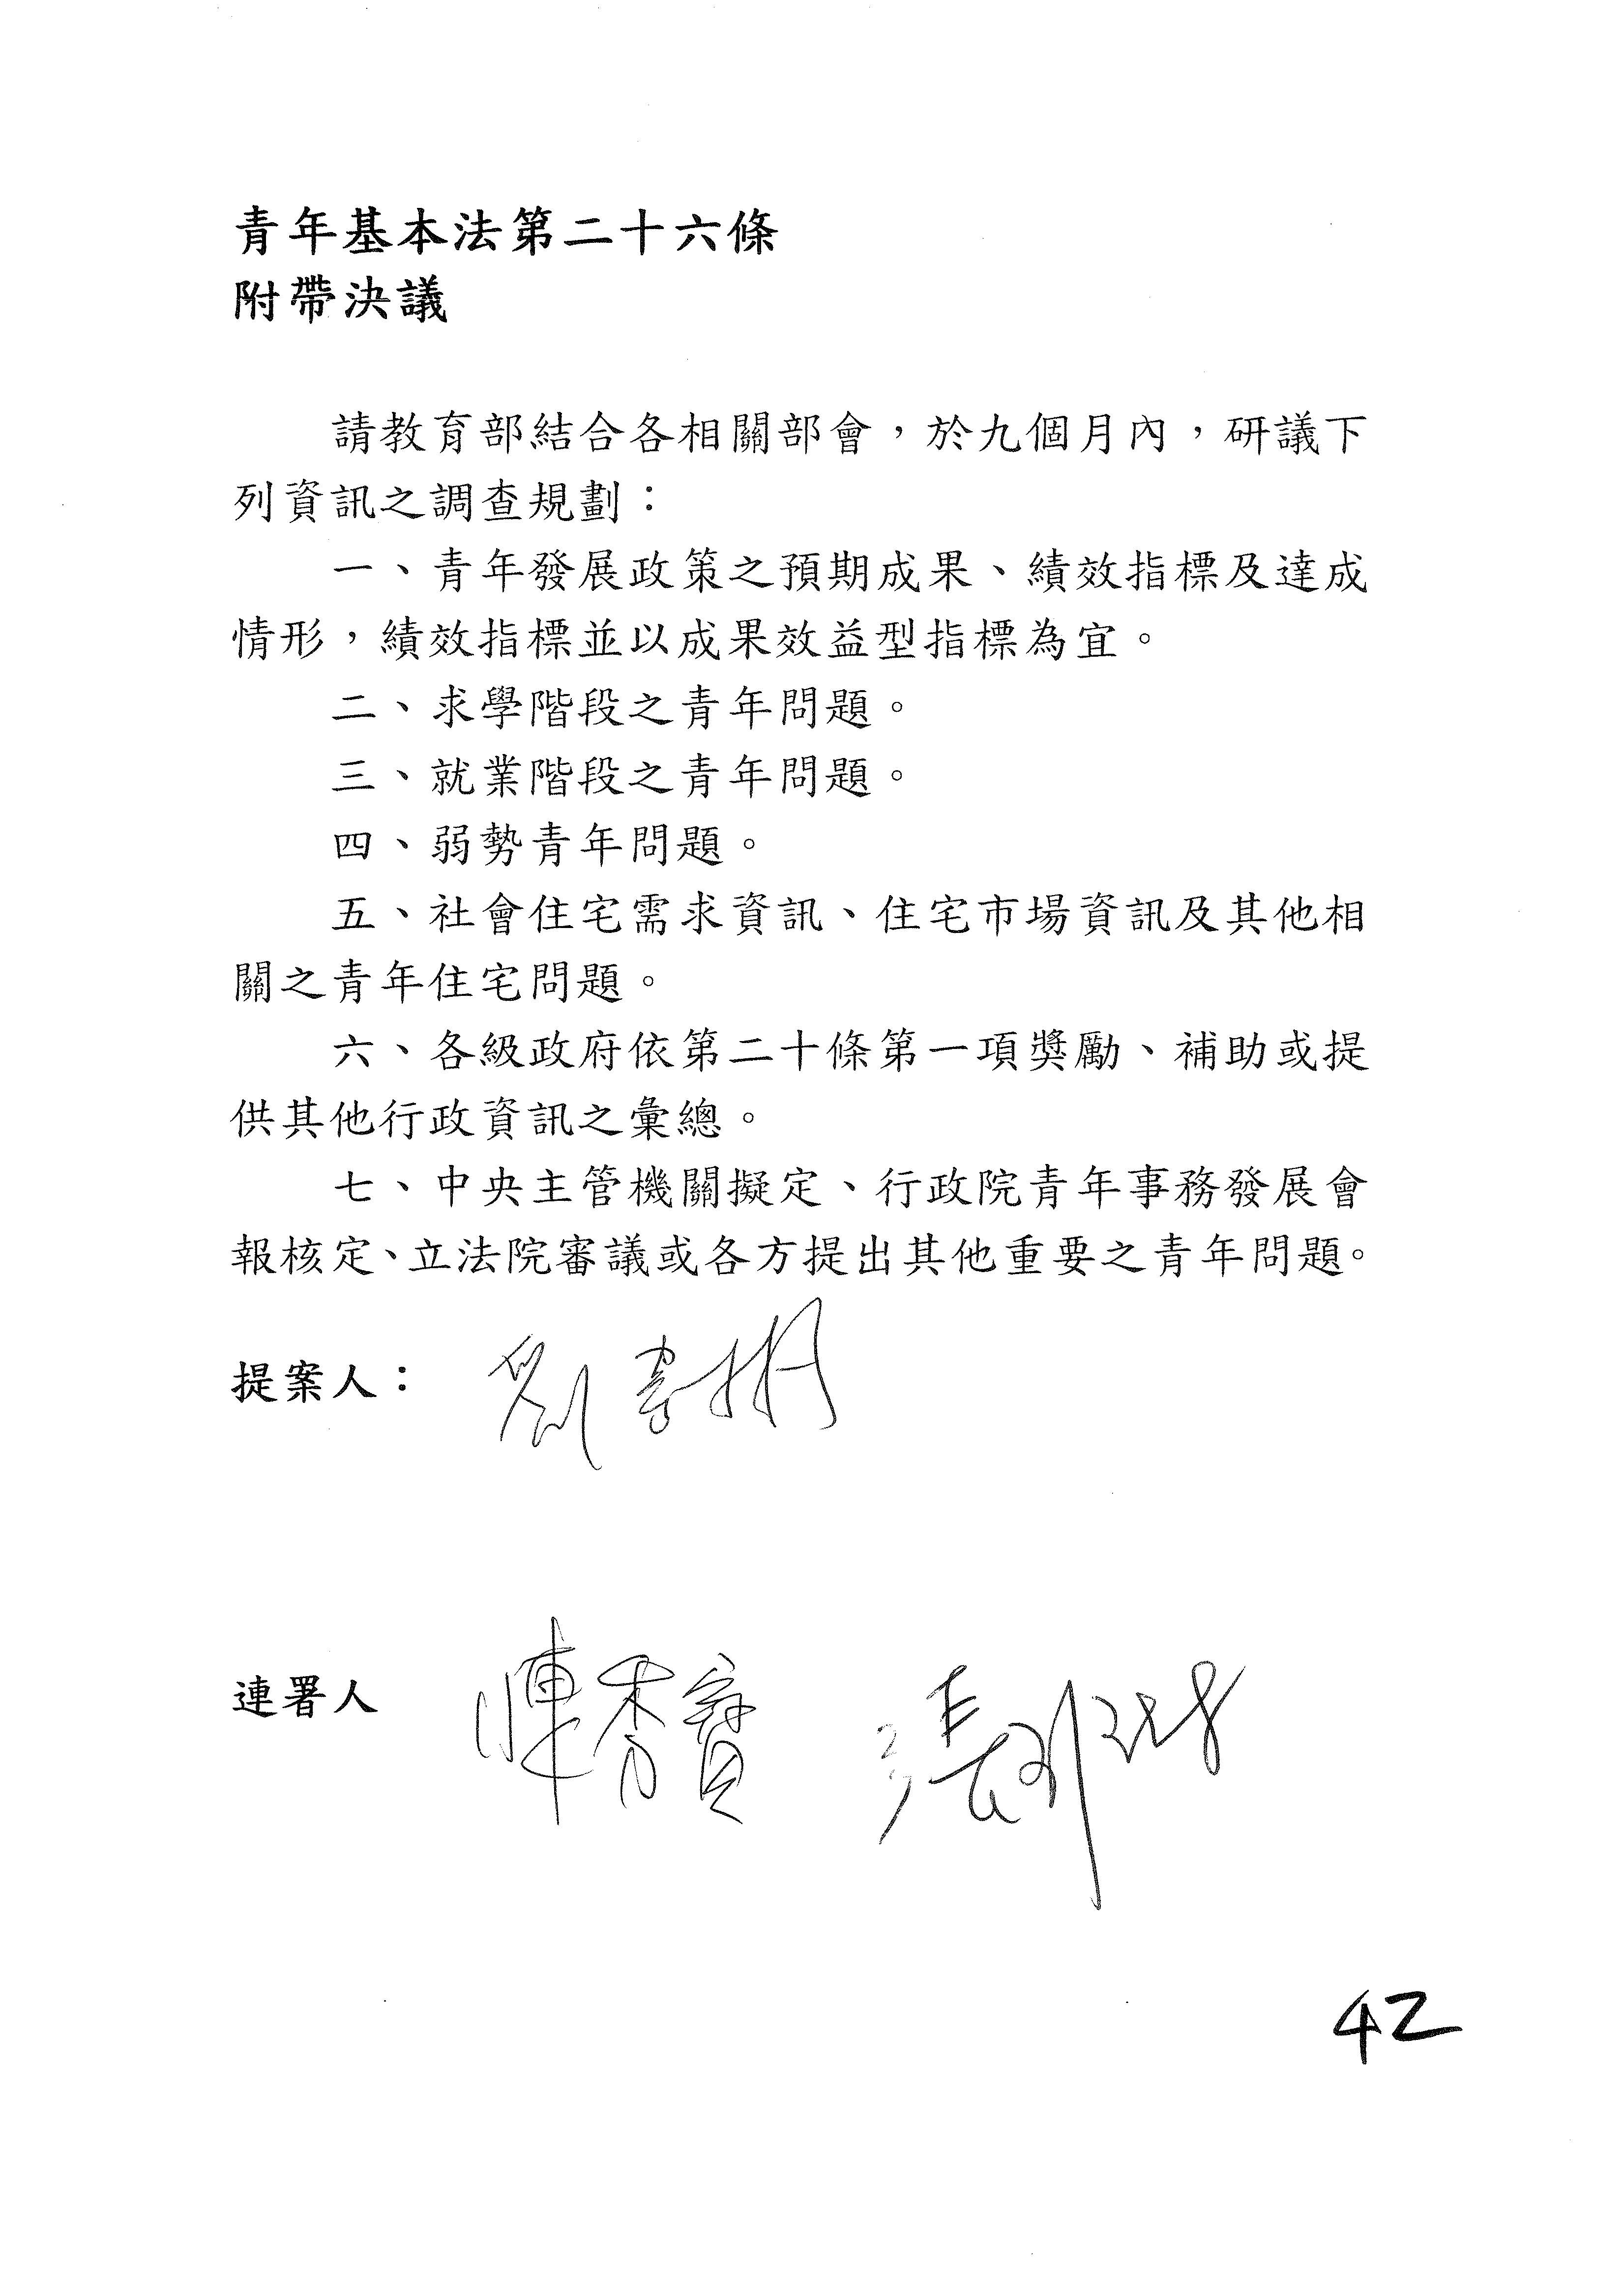 青年基本法第二十六條
附帶決議
請教育部結合各相關部會，於九個月內，研議下
列資訊之調查規劃：
一、青年發展政策之預期成果、績效指標及達成
情形，績效指標並以成果效益型指標為宜。
二、求學階段之青年問題。
三、就業階段之青年問題。
四、弱勢青年問題。
五、社會住宅需求資訊、住宅市場資訊及其他相
關之青年住宅問題。
六、各級政府依第二十條第一項獎勵、補助或提
供其他行政資訊之彙總。
七、中央主管機關擬定、行政院青年事務發展會
報核定、立法院審議或各方提出其他重要之青年問題。
提案人：劉書彬
連署人 陳秀寳
42